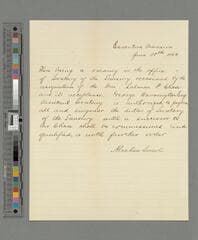 Executive Mansion
June 30th 1864
There being a vacancy in the office
of Secretary of the Treasury occasioned by the
resignation of the Hon. Salmon P. Chase
and its acceptance George Harrington
Assistant Secretary is authorized to perform
all and singular the duties of Secretary
of the Treasury until a successor to
Mr Chase shall be commissioned and
qualified, or until further order
Abraham Lincoln